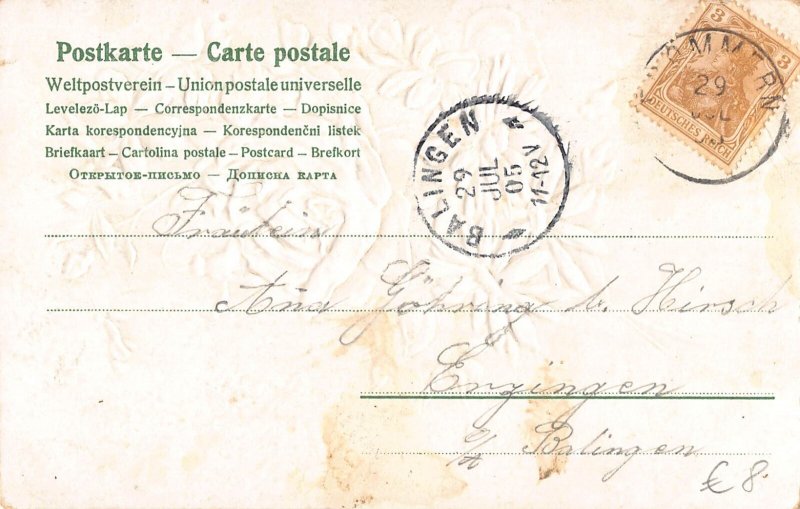 Postkarte — Carte postale
Weltpostverein – Union postale universelle
Levelező-Lap — Correspondenzkarte — Dopisnice
Karta korespondencyjna — Korespondenční lístek
Briefkaart – Cartolina postale – Postcard – Brefkort
Открытое-письмо — Дописна карта
3
3
DEUTSCHES REICH
29
JUL
BALINGEN
29
JUL
05
11-12V
Fräulein
Göhring Hirsch
Erzingen
Balingen
€ 8